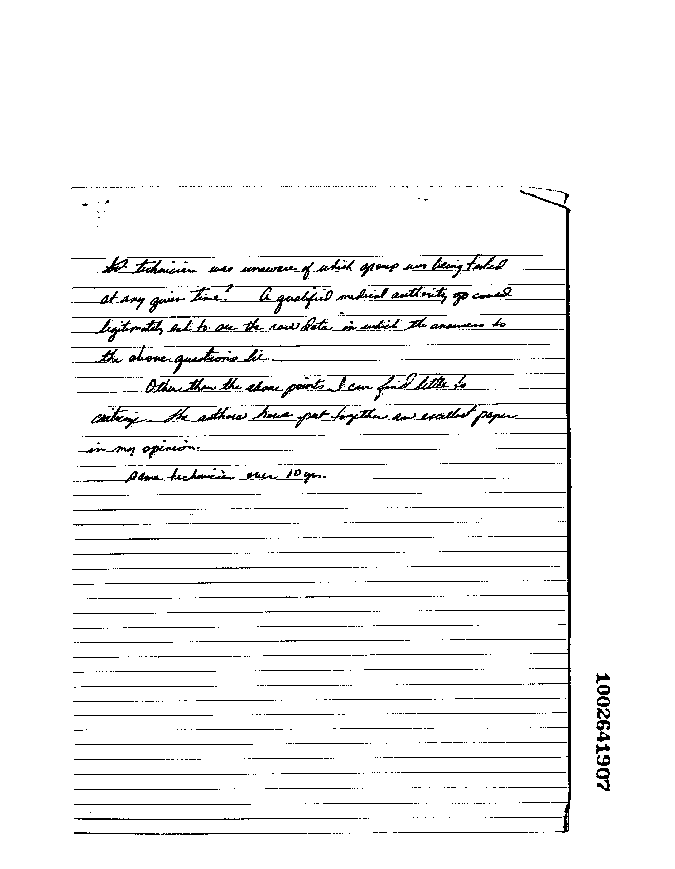 technician was unaware of which group was being tested
at any given time? A qualified medical authority could
legitimately ask to see the raw data in which the answers to
the above questions lie.
Other than the above points I can find little to
criticize. The authors have put together an excellent paper
in my opinion.
Same technician over 10 yrs.
1002641907